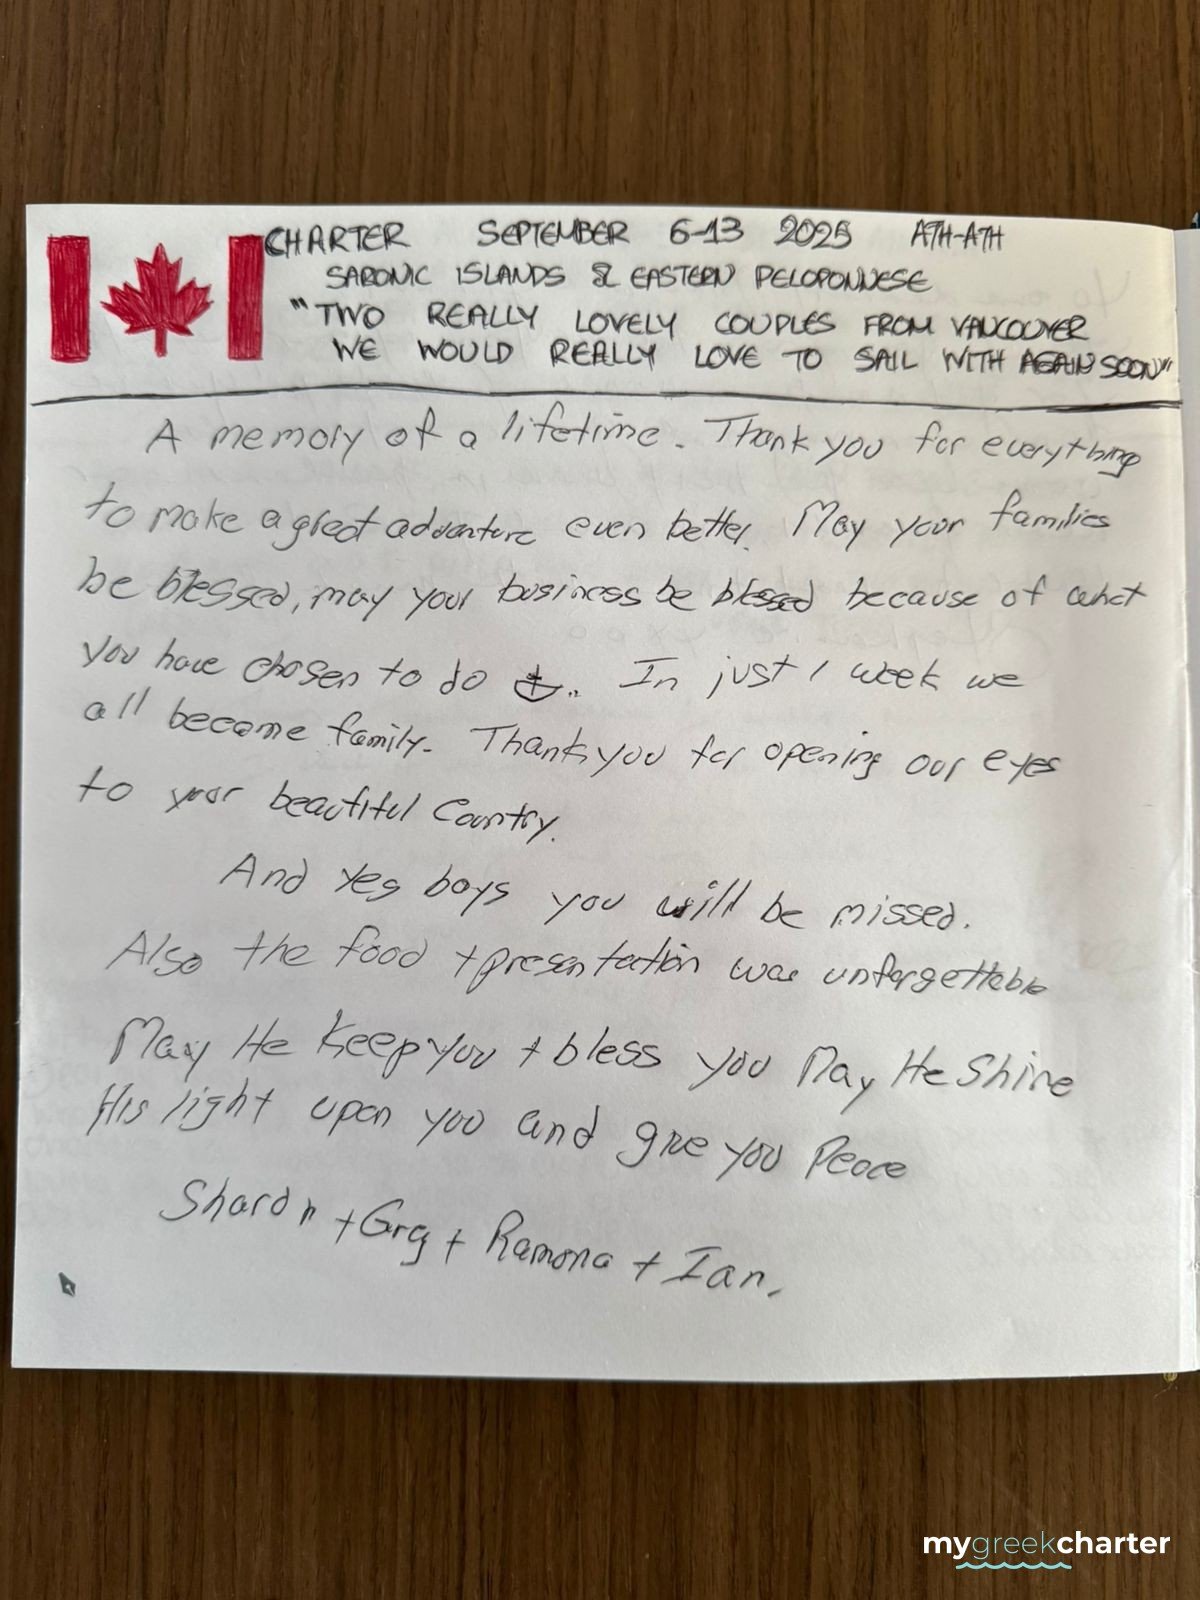 CHARTER SEPTEMBER 6-13 2025 ATH-ATH
SARONIC ISLANDS & EASTERN PELOPONNESE
"TWO REALLY LOVELY COUPLES FROM VANCOUVER
WE WOULD REALLY LOVE TO SAIL WITH AGAIN SOON"
A memory of a lifetime. Thank you for everything
to make a great adventure even better. May your families
be blessed, may your business be blessed because of what
you have chosen to do .. In just 1 week we
all became family. Thank you for opening our eyes
to your beautiful Country.
And yes boys you will be missed.
Also the food + presentation was unforgettable
May He keep you + bless you May He Shine
His light upon you and give you Peace
Sharon + Grg + Ramona + Ian.
mygreekcharter